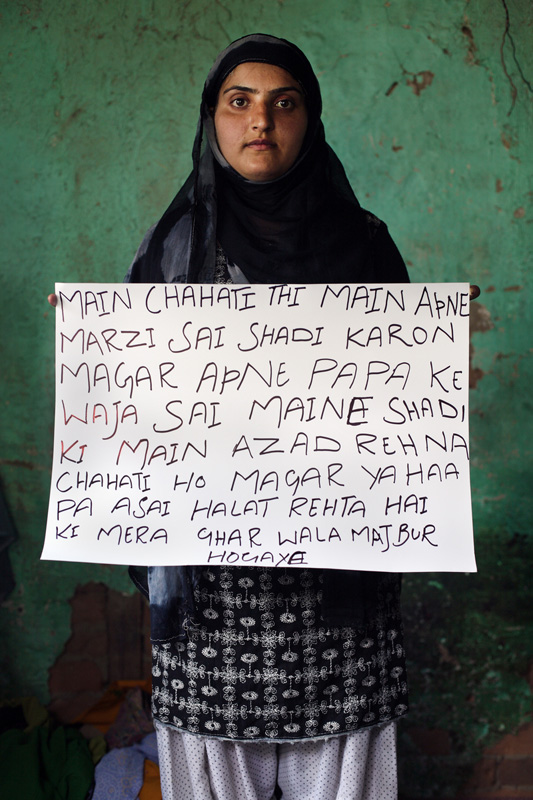 MAIN CHAHATI THI MAIN APNE
MARZI SAI SHADI KARON
MAGAR APNE PAPA KE
WAJA SAI MAINE SHADI
KI MAIN AZAD REHNA
CHAHATI HO MAGAR YAHAA
PA ASAI HALAT REHTA HAI
KI MERA GHAR WALA MAJBUR
HOGAYE